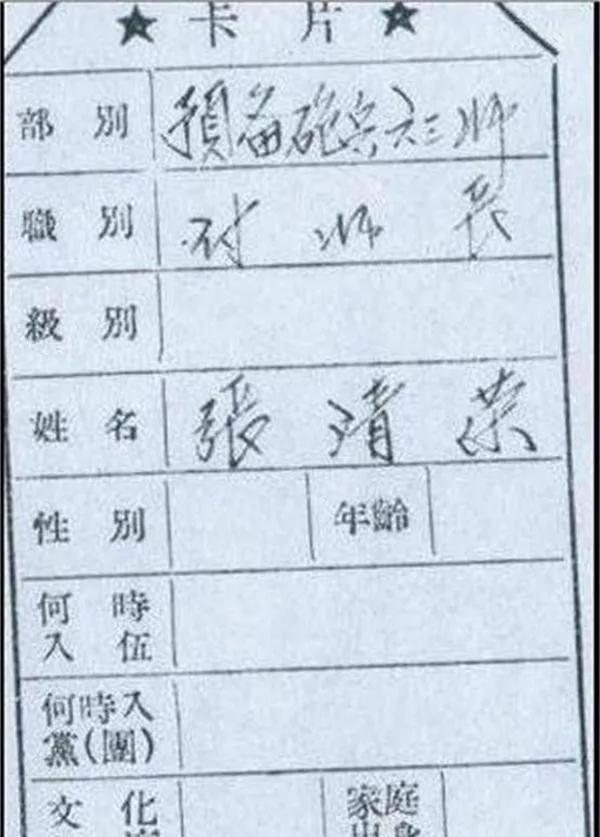 ★ 卡 片 ★
部 別 預备砲兵六三师
職 別 付 师 长
級 別
姓 名 張 清 荣
性 別 年齡
何 時
入 伍
何時入
黨(團)
文 化 家庭